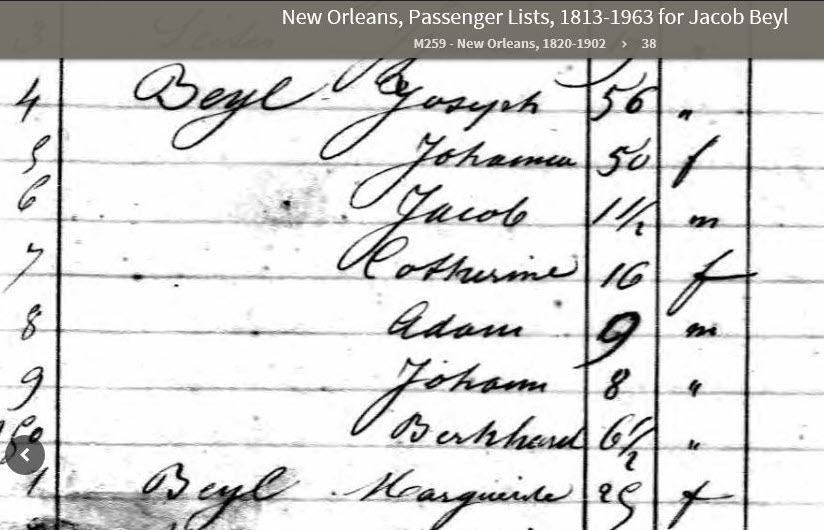 New Orleans, Passenger Lists, 1813-1963 for Jacob Beyl
M259 - New Orleans, 1820-1902 › 38
4 Beyl Joseph 56 "
5 Johanna 50 f
6 Jacob 1 1/2 m
7 Catherine 16 f
8 Adam 9 m
9 Johann 8 "
Berkhard 6 1/2 "
1 Beyl Marguerite 25 f